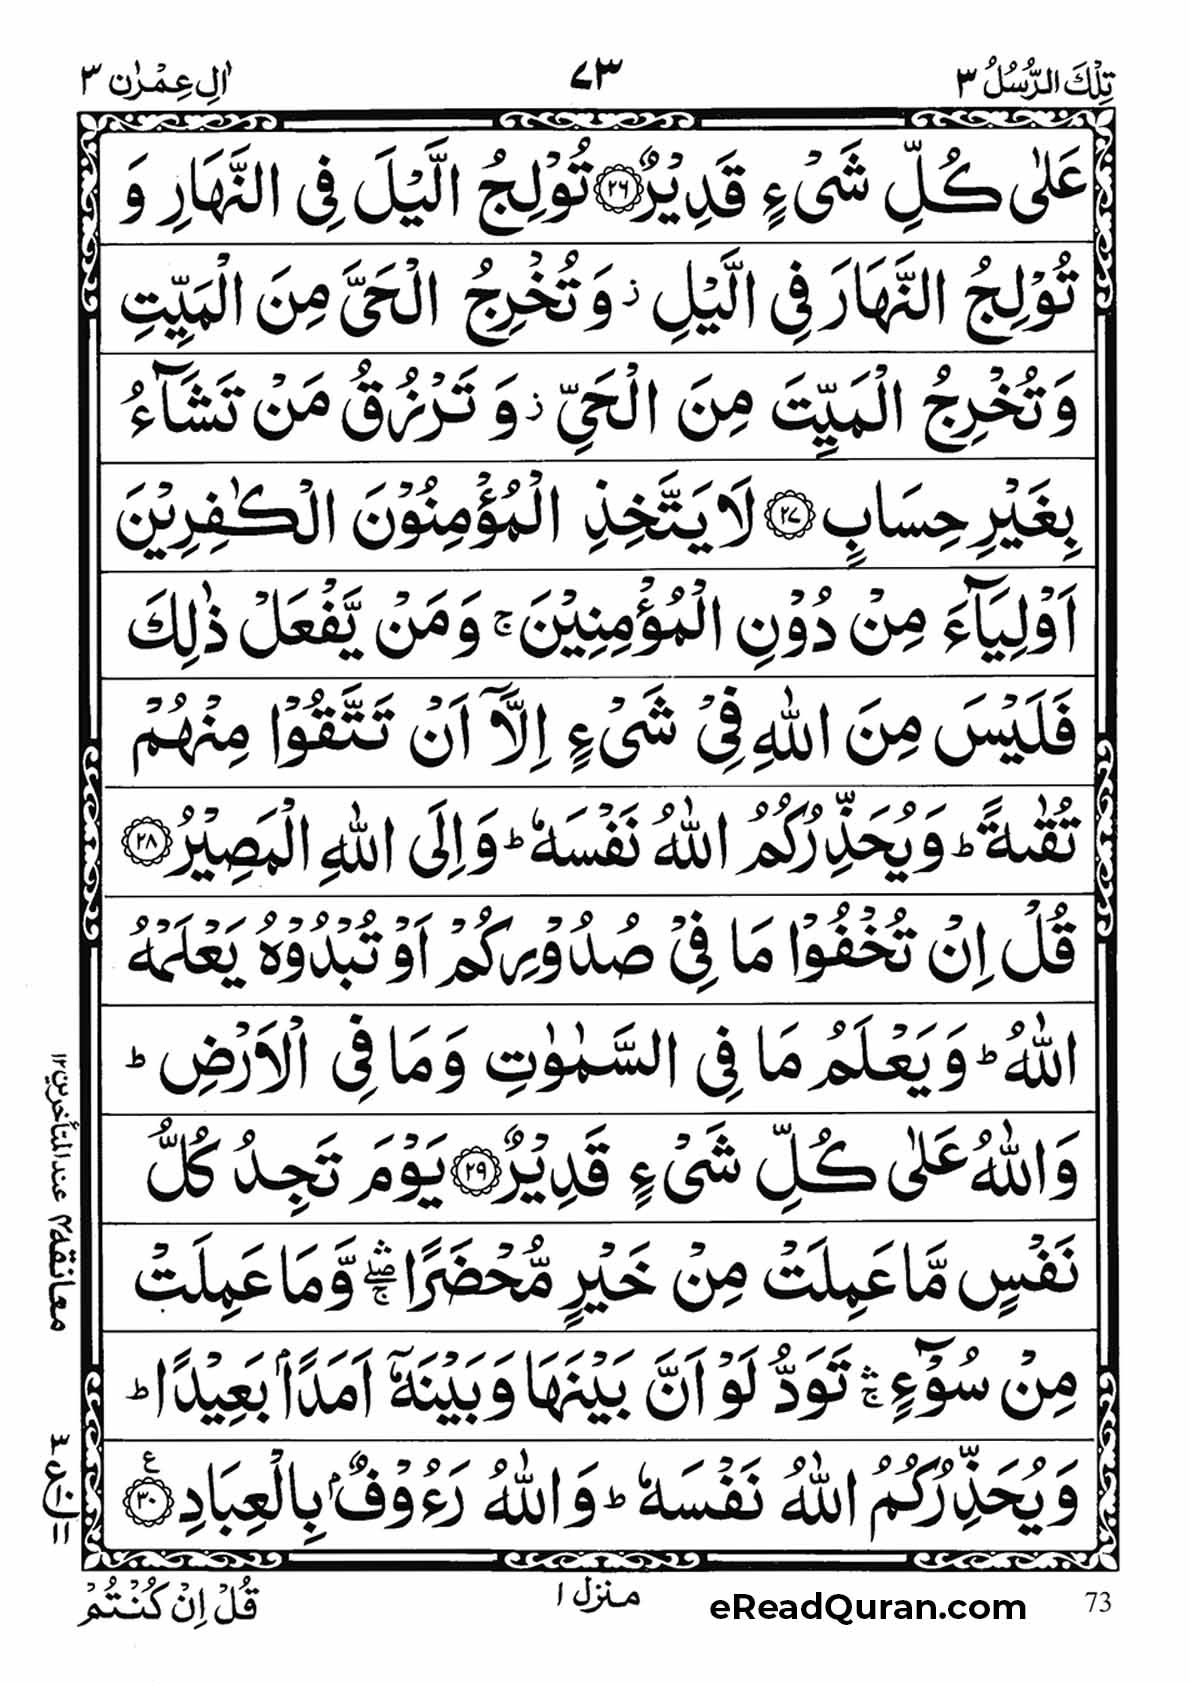 تِلْكَ الرُّسُلُ ٣
٧٣
اٰلِ عِمْرٰن ٣
عَلٰى كُلِّ شَىْءٍ قَدِيْرٌ ﴿٢٦﴾ تُوْلِجُ الَّيْلَ فِى النَّهَارِ وَ
تُوْلِجُ النَّهَارَ فِى الَّيْلِ ز وَ تُخْرِجُ الْحَىَّ مِنَ الْمَيِّتِ
وَ تُخْرِجُ الْمَيِّتَ مِنَ الْحَىِّ ز وَ تَرْزُقُ مَنْ تَشَآءُ
بِغَيْرِ حِسَابٍ ﴿٢٧﴾ لَا يَتَّخِذِ الْمُؤْمِنُوْنَ الْكٰفِرِيْنَ
اَوْلِيَآءَ مِنْ دُوْنِ الْمُؤْمِنِيْنَ ج وَ مَنْ يَّفْعَلْ ذٰلِكَ
فَلَيْسَ مِنَ اللّٰهِ فِىْ شَىْءٍ اِلَّاۤ اَنْ تَتَّقُوْا مِنْهُمْ
تُقٰىةً ط وَ يُحَذِّرُكُمُ اللّٰهُ نَفْسَهٗ ط وَ اِلَى اللّٰهِ الْمَصِيْرُ ﴿٢٨﴾
قُلْ اِنْ تُخْفُوْا مَا فِىْ صُدُوْرِكُمْ اَوْ تُبْدُوْهُ يَعْلَمْهُ
اللّٰهُ ط وَ يَعْلَمُ مَا فِى السَّمٰوٰتِ وَ مَا فِى الْاَرْضِ ط
وَاللّٰهُ عَلٰى كُلِّ شَىْءٍ قَدِيْرٌ ﴿٢٩﴾ يَوْمَ تَجِدُ كُلُّ
نَفْسٍ مَّا عَمِلَتْ مِنْ خَيْرٍ مُّحْضَرًا ۛۖۚ وَّ مَا عَمِلَتْ
مِنْ سُوْٓءٍ ۛۚ تَوَدُّ لَوْ اَنَّ بَيْنَهَا وَ بَيْنَهٗۤ اَمَدًاۢ بَعِيْدًا ط
وَ يُحَذِّرُكُمُ اللّٰهُ نَفْسَهٗ ط وَ اللّٰهُ رَءُوْفٌۢ بِالْعِبَادِ ﴿٣٠﴾ ع
معانقه ٢ عند المتأخرين ١٢
٣
ع
١٠
١١
قُلْ اِنْ كُنْتُمْ
منزل ١
eReadQuran.com
73